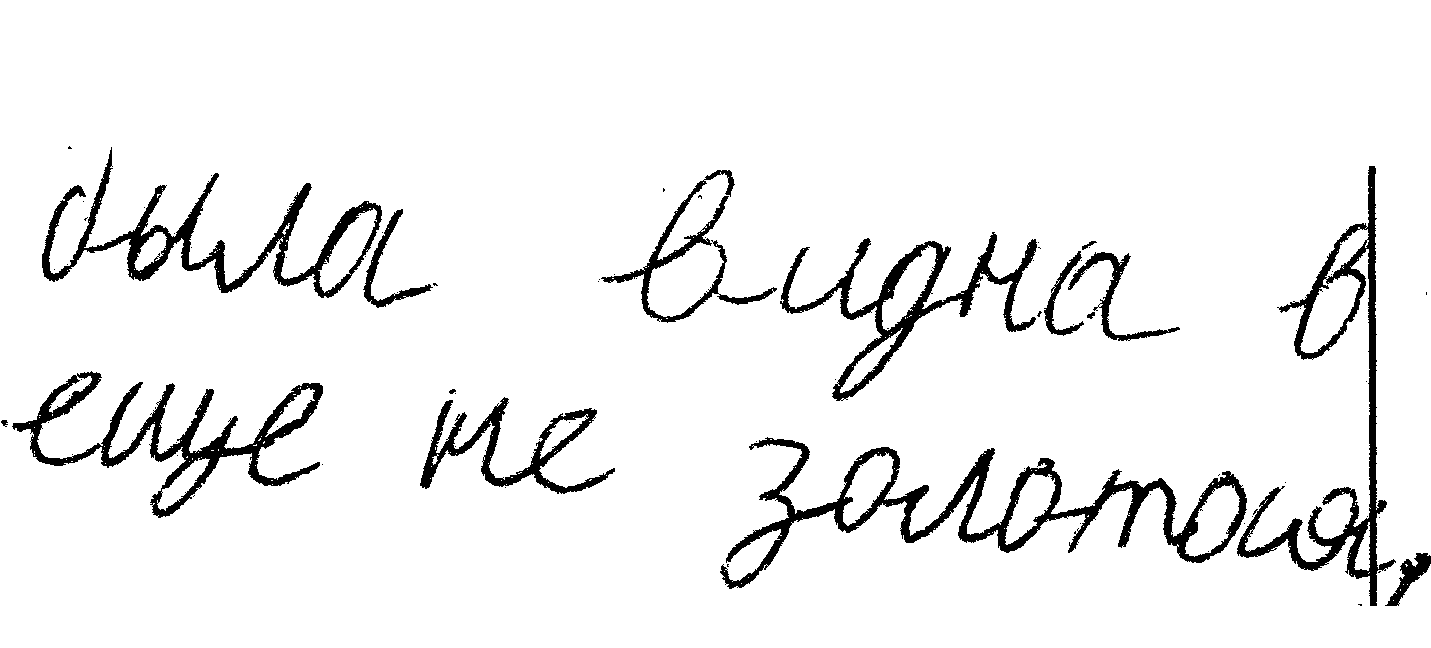 была видна в
еще не золотая,